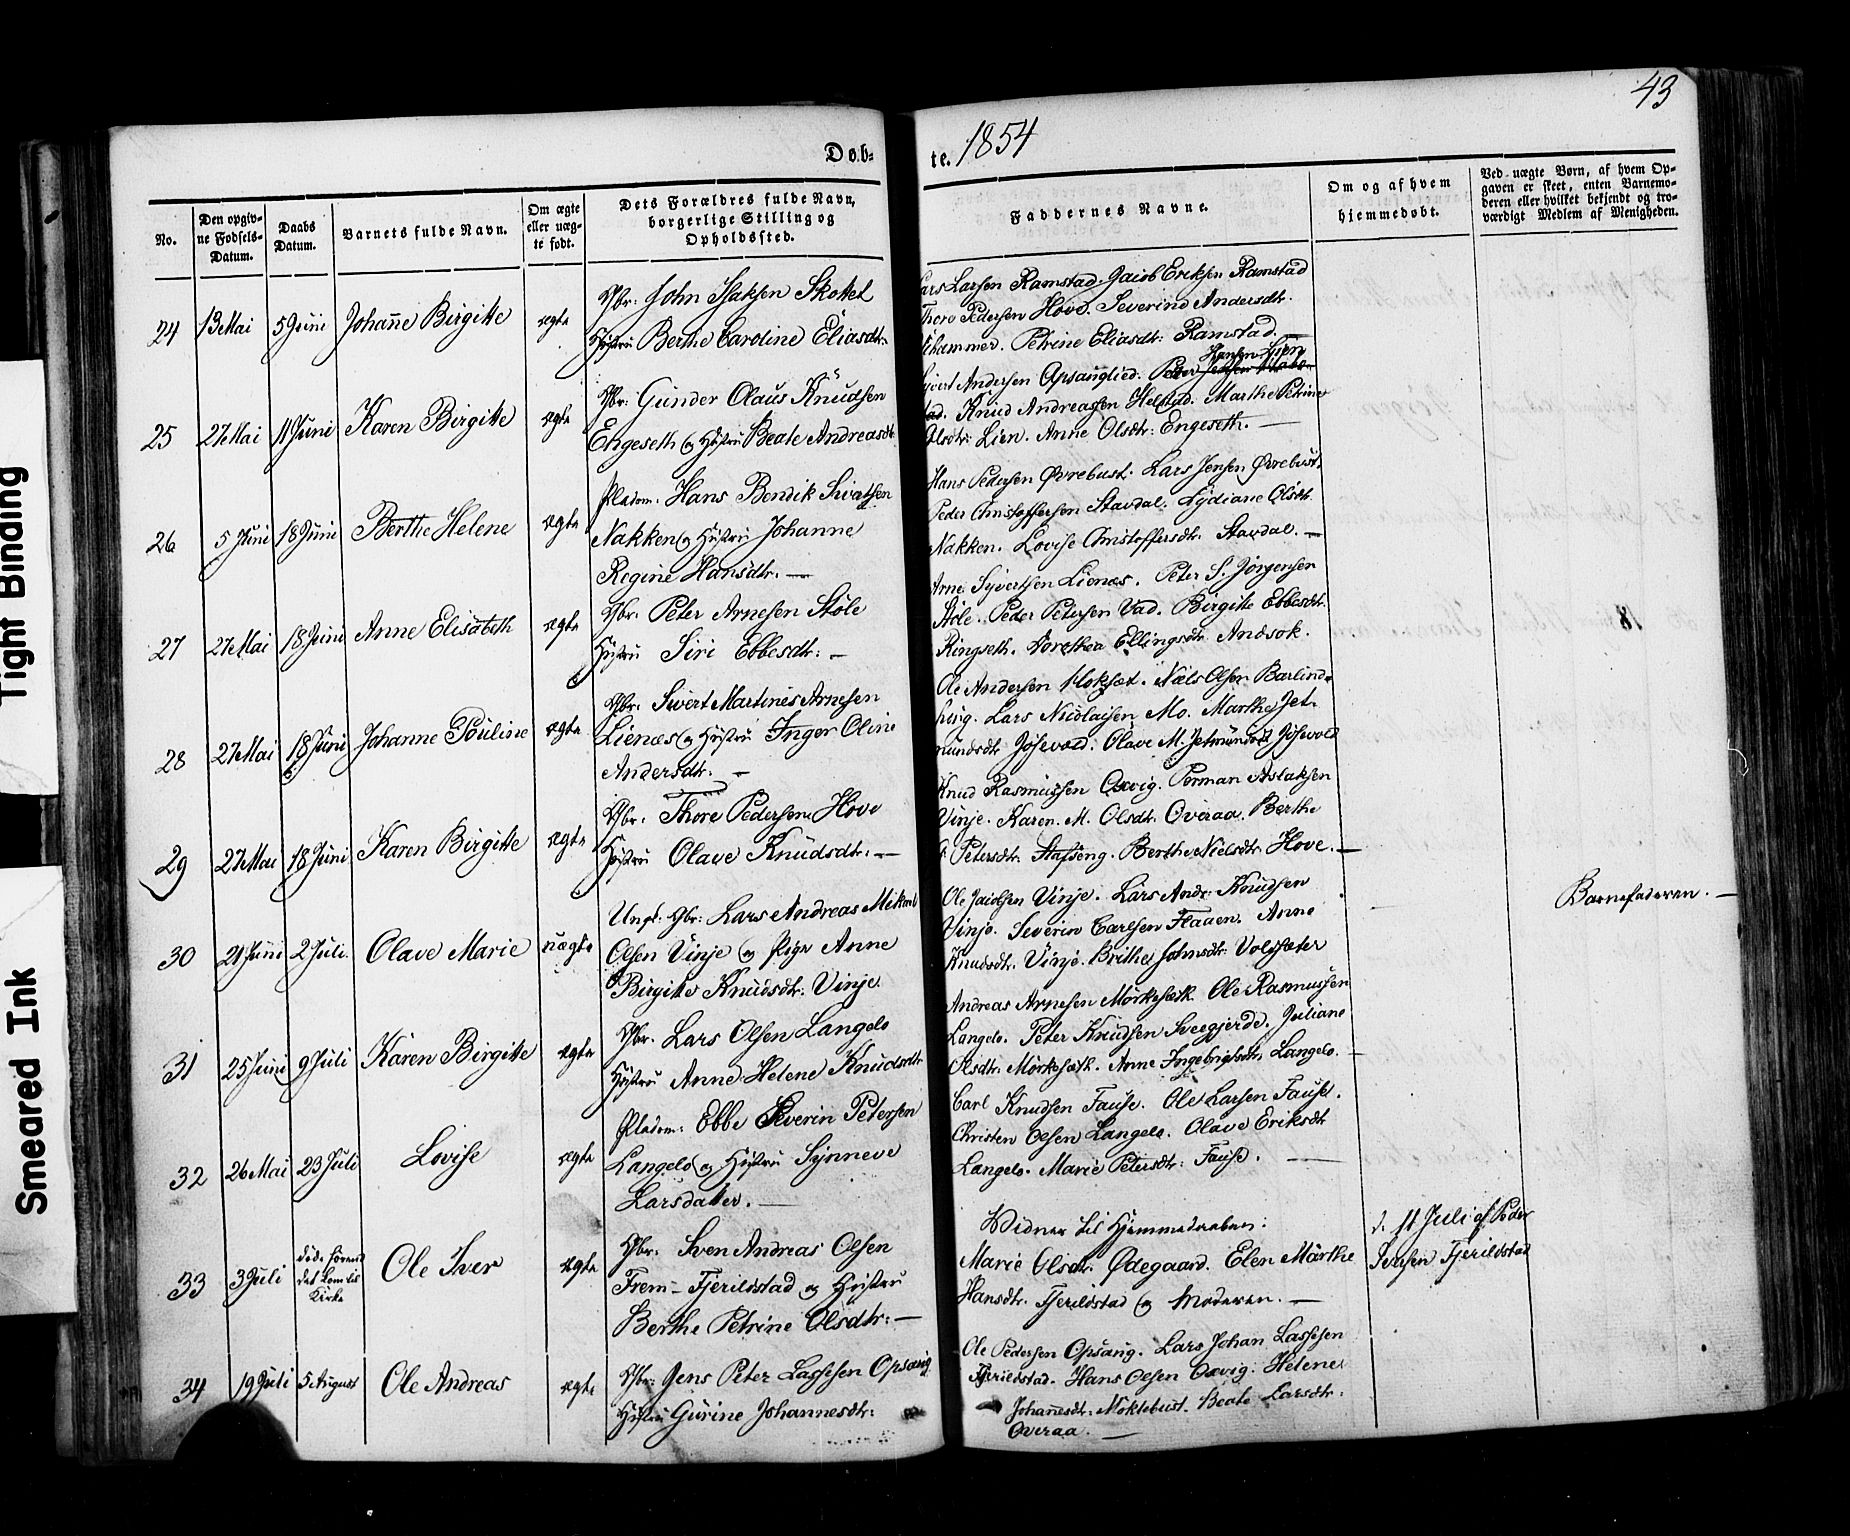 43
Døb-
te. 1854
No.
Den opgiv-
ne Fødsels-
Datum.
Daabs
Datum.
Barnets fulde Navn.
Om ægte
eller uæg-
te født.
Dets Forældres fulde Navn,
borgerlige Stilling og
Opholdssted.
Faddernes Navne.
Om og af hvem
hjemmedøbt.
Ved uægte Børn, af hvem Op-
gaven er skeet, enten Barnemo-
deren eller hvilket bekjendt og tro-
værdigt Medlem af Menigheden.
24 13 Mai 5 Juni Johanne Birgitte ægte
Gbr: John Isaksen Skottet
Hustru Berthe Caroline Eliasdtr.
Lars Larsen Ramstad. Jacob Eriksen Ramstad
Thore Pedersen Hove. Severine Andersdtr.
Petrine Eliasdtr: Ramstad. —
25 27 Mai 11 Juni Karen Birgitte ægte
Gbr: Gunder Olaus Knudsen
Engeseth og Hustru Beate Andreasdt
Hansen Lien
Sivert Andersen Opsanglied. Peder
tad. Knud Andreassen Helstad. Marthe Petrine
Olsdtr: Lien. Anne Olsdtr: Engeseth. —
26 5 Juni 18 Juni Berthe Helene ægte
Pladsm: Hans Bendik Sivertsen
Nakken og Hustru Johanne
Regine Hansdtr. —
Hans Pedersen Øvrebust. Lars Jensen Øvrebust.
Peder Christoffersen Stavdal. Lydiane Olsdt.
Nakken. Lovise Christoffersdtr. Stavdal. —
27 27 Mai 18 Juni Anne Elisabeth ægte
Gbr: Peter Arnesen Støle
Hustru Siri Ebbesdtr: —
Arne Syvertsen Lienæs. Peter S. Jørgensen
Støle. Peder Petersen Vad. Birgitte Ebbesdtr.
Ringseth. Dorothea Ellingsdtr. Andsok.
28 27 Mai 18 Juni Johanne Pouline ægte
Gbr: Sivert Martinus Arnesen
Lienæs og Hustru Inger Oline
Andersdtr. —
Ole Andersen Moksæt. Niels Olsen Barlind-
houg. Lars Nicolaisen Mo. Marthe Jet-
mundsdtr Jøsevold. Olave M. Jetmundsdt Jøsevold
29 27 Mai 18 Juni Karen Birgitte ægte
Gbr: Thore Pedersen Hove
Hustru Olave Knudsdtr: —
Knud Rasmussen Oxvig. Perman Aslaksen
Vinje. Karen M. Olsdt. Overaa. Berthe
Petersdtr. Stafseng. Berthe Nielsdtr. Hove. —
30 21 Juni 2 Juli. Olave Marie uægte
Ungk: Gbr: Lars Andreas Mikael
Olsen Vinje og Pige Anne
Birgitte Knudsdtr: Vinje.
Ole Jacobsen Vinje. Lars Andr: Knudsen
Vinje. Severin Carlsen Flaaen. Anne
Knudsdtr. Vinje. Brithe Johnsdtr. Voldsæter
Barnefaderen. —
31 25 Juni 9 Juli Karen Birgitte ægte
Gbr. Lars Olsen Langelo
Hustru Anne Helene Knudsdtr
Andreas Arnesen Mørkesæth. Ole Rasmussen
Langelo. Peter Knudsen Sveegjerde. Juliane
Olsdtr: Mørkesæth. Anne Ingebrigtsdtr Langelo. —
32 26 Mai 23 Juli Lovise ægte
Pladsm: Ebbe Severin Petersen
Langelo og Hustru Synneve
Larsdatter. —
Carl Knudsen Fause. Ole Larsen Fause.
Christen Olsen Langelo. Olave Eriksdt
Langelo. Marie Petersdtr: Fause. —
33 3 Juli
døde førend
det kom til
Kirke
Ole Iver ægte
Gbr. Sven Andreas Olsen
Frem-Fjerildstad og Hustru
Berthe Petrine Olsdtr: —
Vidner til Hjemmedaaben:
Marie Olsdt. Ødegaard. Elen Marthe
Hansdtr. Fjerildstad og Moderen. —
d. 11 Juli af Peder
Iversen Fjerildstad
34 19 Juli 5 August Ole Andreas ægte
Gbr: Jens Peter Lassesen Opsang
Hustru Gurine Johannesdtr:
Ole Pedersen Opsang. Lars Johan Lassesen
Fjerildstad. Hans Olsen Oxvig. Helene
Johannesdtr: Noktebust. Beate Larsdtr:
Overaa. —
Tight Binding
Smeared Ink